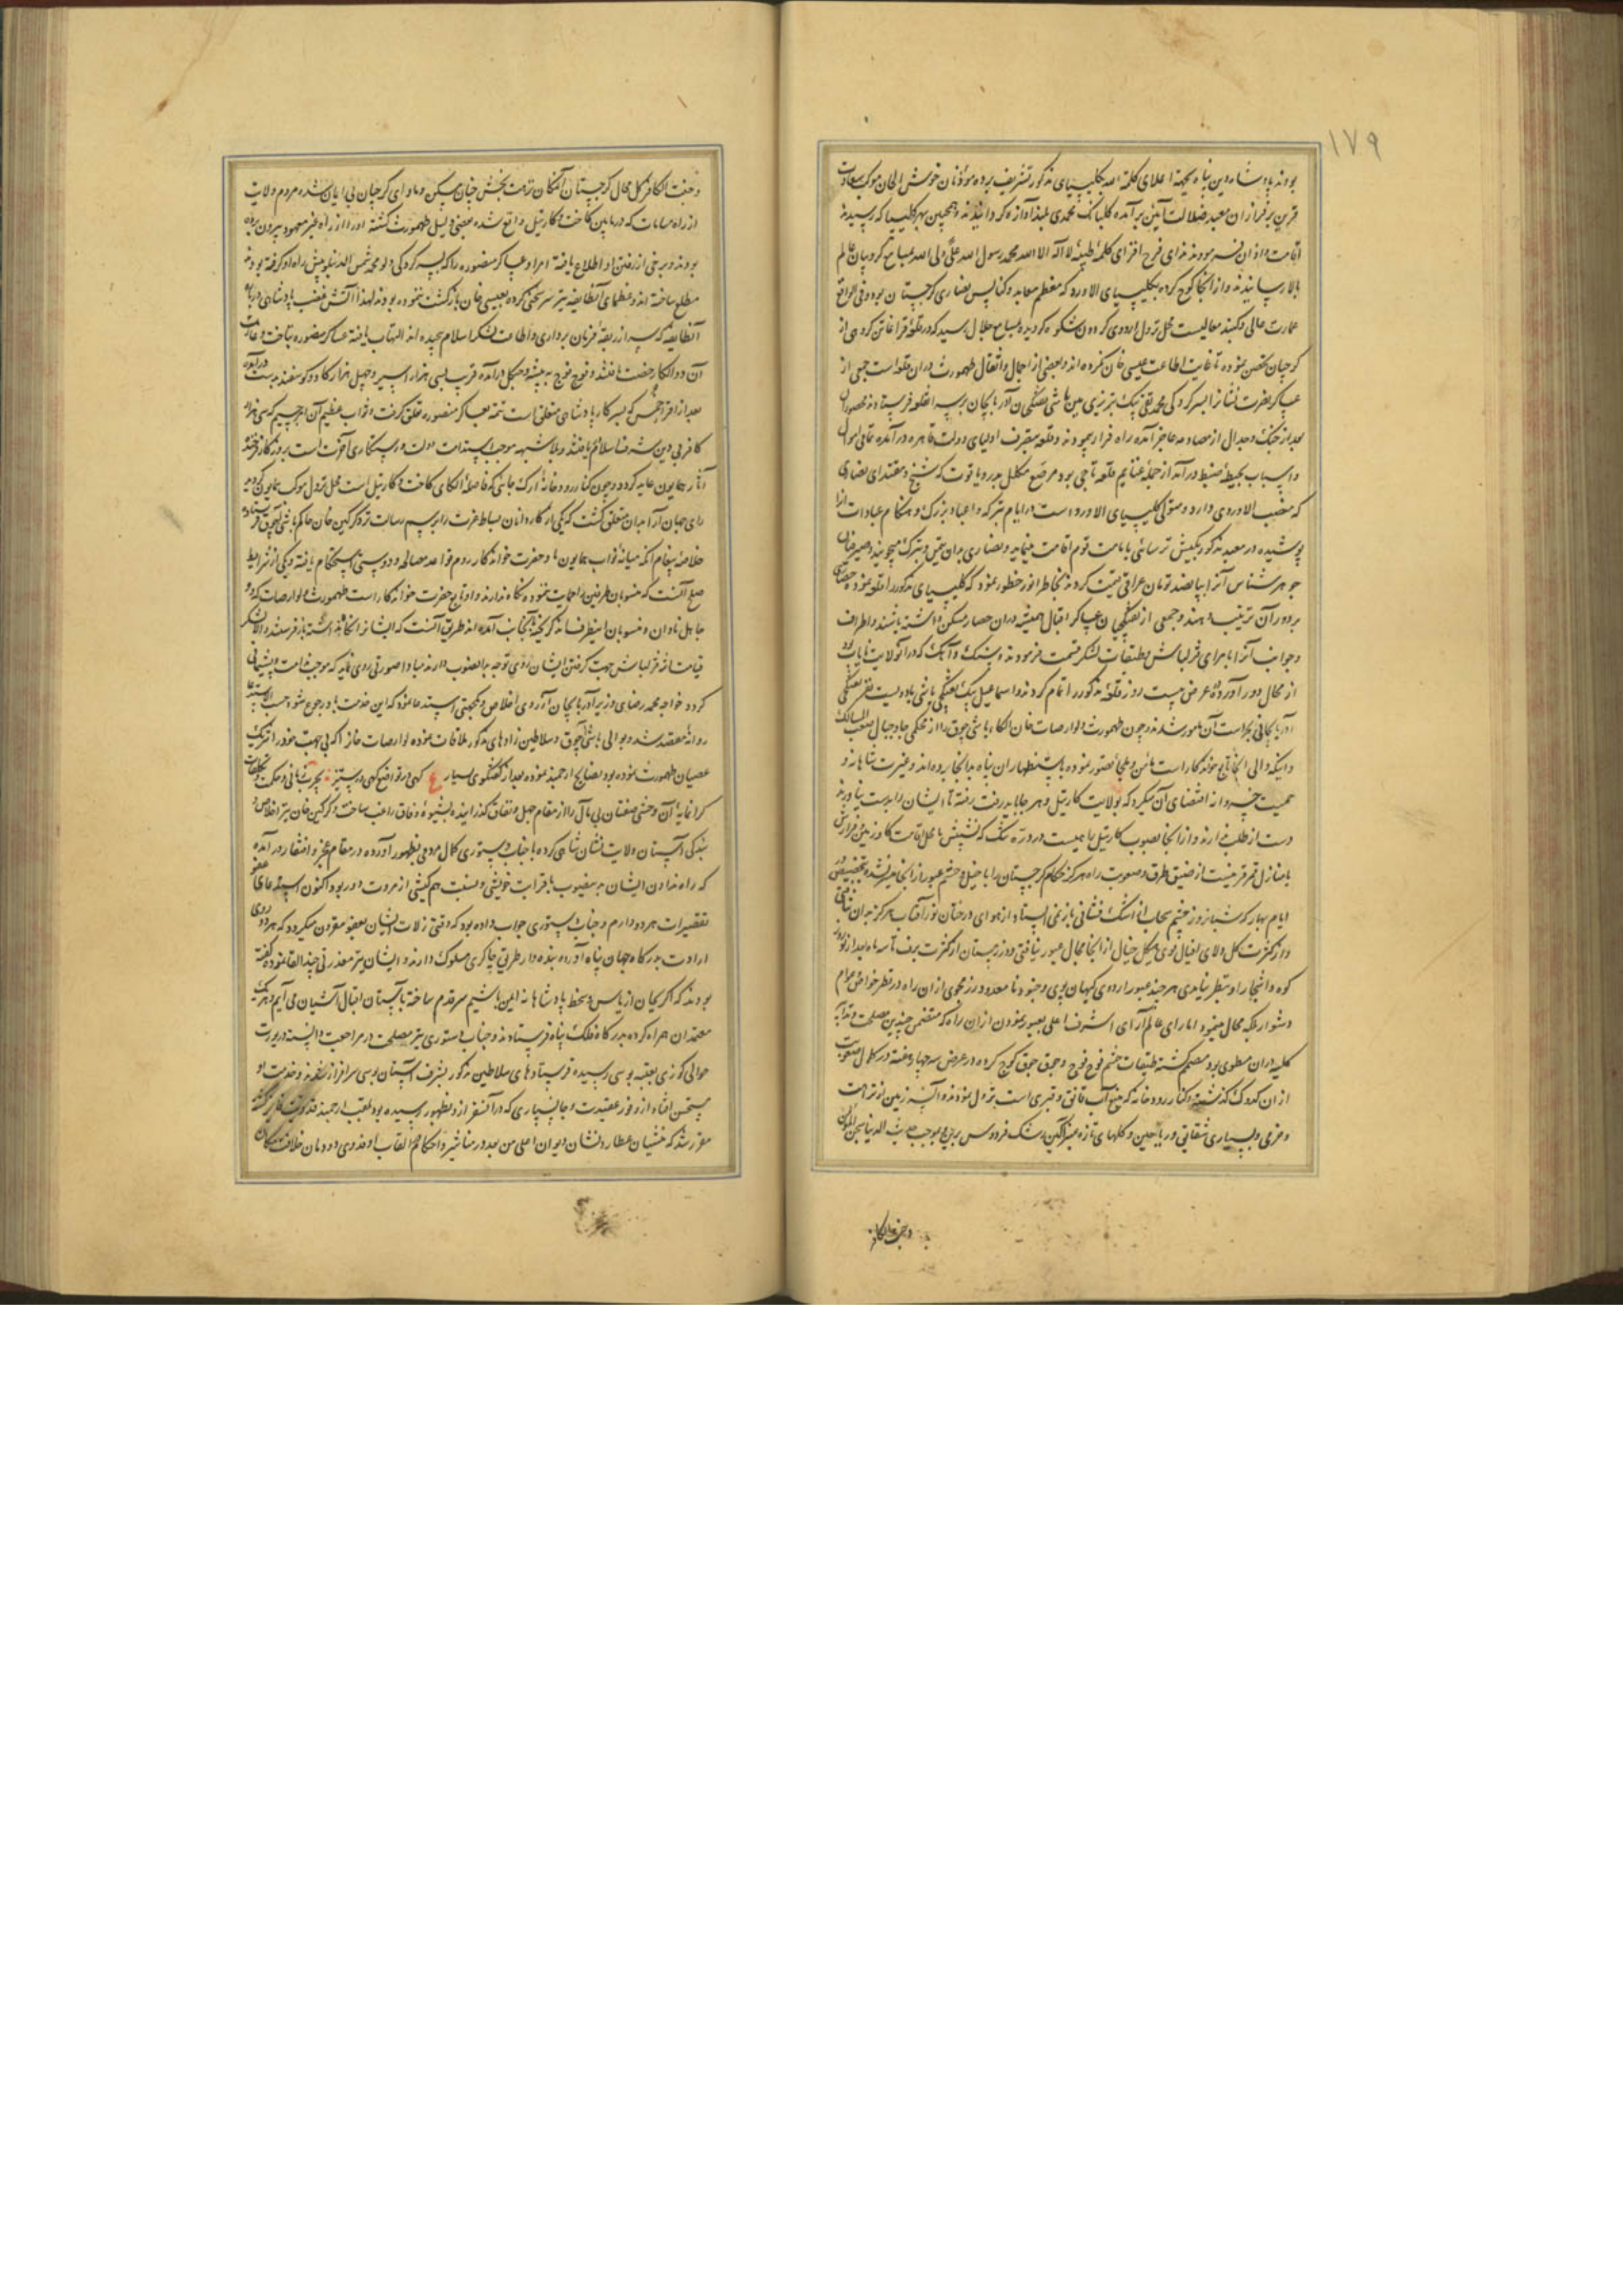 ۱۷۹
بودند پادشاه دین پناه بجهة اعلای کلمة الله بکلیسیای مذکور تشریف برده موذنان خوش الحان موکب سعادت
قرین بر فراز ان معبد ضلالت آئین بر آمده کلبانک محمدی بلند آوازه کردانیدند و همچنین بهر کلیسیا که رسیدند
اقامت و اذان نموده ندای فرح افزای کلمهٔ طیبهٔ لا اله الا الله محمد رسول الله علی ولی الله بمسامع کروبیان عالم
بالا رسانیدند و از انجا کوچ کرده بکلیسیای الاورد که معظم معابد و کنایس نصاری کرجستان بود و فی الواقع
عمارت عالی و کنبد متعالیست محل نزول اردوی کردون شکوه کردیده بمسامع جلال رسید که در قلعهٔ قراغاتن کروهی از
کرجیان تحصن نموده تا غایت اطاعت عیسی خان نکرده اند و بعضی از احمال و اثقال طهمورث در ان قلعه است جمعی از
عساکر نصرت نشان را بسرکردکی محمد تقی بیک تبریزی مین باشی تفنکچیان آذربایجان بر سر انقلعه فرستادند محصوران
بعد از جنک و جدال از مصادمه عاجز آمده راه فرار پیمودند و قلعه بتصرف اولیای دولت قاهره در آمده تمامی اموال
و اسباب بحیطهٔ ضبط در آمد از جمله غنایم قلعه تاجی بود مرصع مکلل بدر و یاقوت که شیخ و مقتدای نصاری
که منصب الاوردی دارد و متولی کلیسیای الاورد است در ایام متبرکه و اعیاد بزرک و هنکام عبادات انرا
پوشیده در معبد مذکور بکیش ترسائی بامامت قوم اقامت مینماید و نصاری بدان تیمن و تبرک میجویند و صیرفیان
جوهر شناس آنرا بپانصد تومان عراقی قیمت کردند بخاطر انور خطور نمود که کلیسیای مذکور را قلعه نموده حصاری
بر دور آن ترتیب دهند و جمعی از تفنکچیان عساکر اقبال همیشه در ان حصار مسکن داشته باشند و اطراف
و جوانب آنرا بامرای قزلباش و طبقات لشکر قسمت فرمودند و سنک و آهک که در آن ولایت نایاب بود
از محال دور آورده در عرض بیست روز قلعهٔ مذکور را تمام کردند و اسماعیل بیک تفنکچی باشی با دویست نفر تفنکچی
آذربایجانی بحراست آن مامور شدند و چون طهمورث و لوارصاب خان الکاء باشی آچوق را از محکمی جا و جبال صعب المسالک
و اینکه والی انجا تابع خواندکار است مامن و ملجأ تصور نموده باستظهار ان پناه بدانجا برده اند و غیرت شاهانه و
حمیت خسروانه اقتضای آن میکرد که بولایت کارتیل و هر جا باید رفت رفته تا ایشان را بدست نیاورند
دست از طلب باز ندارند و از انجا بصوب کارتیل
با منازل قمر قرینست از ضیق طرق و صعوبت راه هرکز حکام کرجستان را با خیل و حشم عبور از انجا میسر نشده بتخصیص در
ایام بهار که شبانه روز چشم سحاب از اشک فشانی باز نمی ایستاد از هوای درختان نور آفتاب هرکز بدان نتافتی
و از کثرت کل و لای افیال قوی هیکل خیال از انجا مجال عبور نیافتی و در زمستان از کثرت برف تا سه ماه بعد از نوروز
کوه و اشجار او بنظر نیامدی هر چند عبور اردوی کیهان پوی و جنود نامعدود رزمجوی از ان راه در نظر خواص و عوام
دشوار بلکه محال مینمود اما رای عالم آرای اشرف اعلی بعبور نمودن از ان راه که متضمن چندین مصلحت و تدابیر
کلیه در ان مطوی بود مصمم کشته طبقات حشم فوج فوج و جوق جوق کوچ کرده در عرض سه چهار هفته در کمال صعوبت
از ان کدوک کذشتند و کنار رودخانه که منبع آب قانق و قبری است نزول نمودند و البته زمین از نزهت
و خرمی و بسیاری شقایق و ریاحین و کلهای تازه عنبرآکین رشک فردوس برین و بموجب حدیث الدنیا سجن المؤمن
و جنة الکافر
و جنت الکافر کل محال کرجستان آنمکان نزهت بخش جنان مسکن و ماوای کرجیان بی ایمان شده مردم ولایت
از راه سامات که در مابین کاخت و کارتیل واقع شده بعضی دلیل طهمورث کشته او را از راه غیر معهود بیرون برده
بودند و برخی از رفتن او اطلاع یافته امرا و عساکر منصوره را که بسرکردکی دلو محمد شمس الدینلو پیش راه او کرفته بودند
مطلع نساخته اند و عظمای آنطایفه نیز سرکشی کرده بعیسی خان بازکشت ننموده بودند لهذا آتش غضب پادشاهی در باره
آنطایفه که سر از ربقهٔ فرمان برداری و اطاعت لشکر اسلام پیچیده اند التهاب یافته عساکر منصوره بتاخت و غارت
آن دو الکا رخصت یافتند و فوج فوج به بیشه و جنکل در آمده قریب بسی هزار اسیر و چهل هزار کاو و کوسفند بدست در آمد
بعد از افراز خمس که بسرکار پادشاهی متعلق است تتمه بعساکر منصوره تعلق کرفت و ثواب عظیم آن امر جسیم که سی هزار
کافر بی دین شرف اسلام یافتند و بلا شبهه موجب ازدیاد دولت و رستکاری آخرت است بروزکار فرخنده
آثار همایون عاید کردد و چون کنار رودخانهٔ ارک جائی که فاصلهٔ الکای کاخت و کارتیل است محل نزول موکب همایون کردید
رای جهان آرا بدان متعلق کشت که یکی از کاردانان بساط عزت را برسم رسالت نزد کرکین خان حاکم باشی آچوق فرستاده
خلاصهٔ پیغام آنکه میانهٔ نواب همایون ما و حضرت خواندکار روم قواعد مصالحه و دوستی استحکام یافته و یکی از شرایط
صلح آنست که منسوبان طرفین را حمایت ننموده نکاه ندارند و او تابع حضرت خواندکار است طهمورث و لوارصاب که دو
جاهل نادان و منسوبان اینطرف اند کریخته بآنجانب آمده اند طریق آنست که ایشان را نکاه نداشته باز فرستد و الا لشکر
قیامت اثر قزلباش جهت کرفتن ایشان روی توجه بدانصوب دارند مبادا صورتی روی نماید که موجب ندامت و پشیمانی
کردد خواجه محمد رضای وزیر آذربایجان از روی اخلاص و یکجهتی استدعا نمود که این خدمت باو رجوع شود حسب الاستدعا
روانهٔ مقصد شد و بوالی باشی آچوق و سلاطین زادهای مذکور ملاقات نموده لوارصاب خان را که بی جهت خود را شریک
عصیان طهمورث نموده بود بنصایح ارجمند نموده بعد از کفتکوی بسیار ع کهی در تواضع کهی در ستیز بچرب زبانی و حکمت و تکلفات
کرانمایه آن وحشی صفتان بی مآل را از مقام جهل و نفاق کذرانیده بشیوهٔ وفاق راغب ساخت و کرکین خان نیز اخلاص و
بندکی آستان ولایت نشان شاهی کرده با جناب دستوری کمال مردمی بظهور آورده در مقام عجز و اعتذار در آمده
که راه ندادن ایشان بدینصوب با قرابت خویشی و نسبت هم کیشی از مروت دور بود اکنون استدعای عفو
تقصیرات هر دو دارم و جناب دستوری جواب داده بود که وقتی زلات ایشان بعفو مقرون میکردد که هر دو روی
ارادت بدرکاه جهان پناه آورده بنده وار طریق چاکری مسلوک دارند و ایشان نیز معذرتی چند القا نموده کفته
بودند که اکر بجان از یاس و سخط پادشاهانه ایمن باشیم سر قدم ساخته بآستان اقبال آشیان می آیم و هر یک
معتمدان همراه کرده بدرکاه فلک پناه فرستادند و جناب دستوری نیز مصلحت در مراجعت دانسته در یورت
حوالی کوری بعتبه بوسی رسیده فرستادهای سلاطین مذکور بشرف آستان بوسی سرافراز شدند و خدمت او
مستحسن افتاد از وفور عقیدت و جانسپاری که در آن سفر از او بظهور رسیده بود بلقب ارجمند فدویت فایز کشته
مقرر شد که منشیان عطارد نشان دیوان اعلی من بعد در مناشیر و احکام القاب او فدوی دودمان خلافت مکان